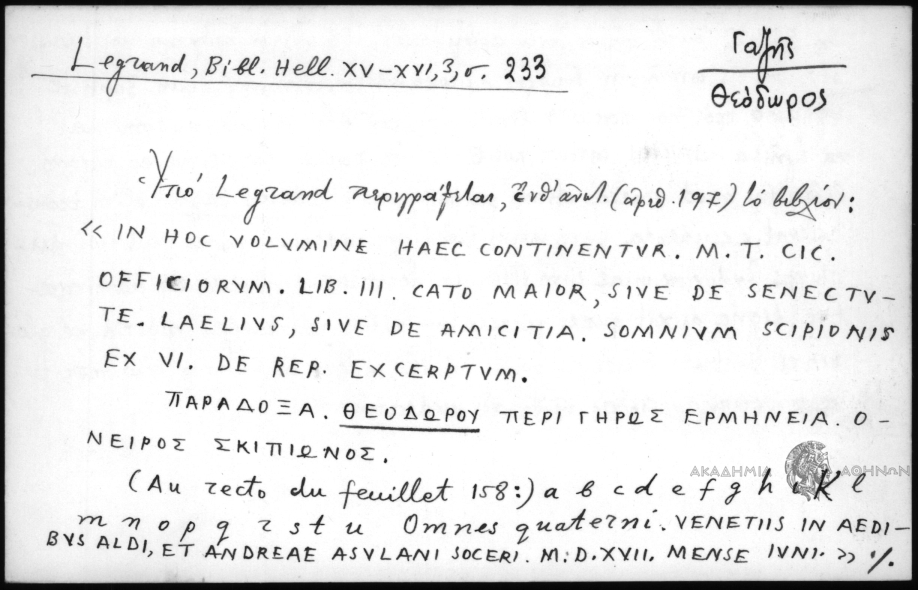 Legrand, Bibl. Hell. XV-XVI, 3, σ. 233
Γαζῆς
Θεόδωρος
Ὑπὸ Legrand περιγράφεται, ἔνθ' ἀνωτ. (ἀριθ. 197) τὸ βιβλίον:
« IN HOC VOLVMINE HAEC CONTINENTVR. M. T. CIC.
OFFICIORVM. LIB. III. CATO MAIOR, SIVE DE SENECTV-
TE. LAELIVS, SIVE DE AMICITIA. SOMNIVM SCIPIONIS
EX VI. DE REP. EXCERPTVM.
ΠΑΡΑΔΟΞΑ. ΘΕΟΔΩΡΟΥ ΠΕΡΙ ΓΗΡΩΣ ΕΡΜΗΝΕΙΑ. Ο-
ΝΕΙΡΟΣ ΣΚΙΠΙΩΝΟΣ.
ΑΚΑΔΗΜΙΑ ΑΘΗΝΩΝ
(Au recto du feuillet 158:) a b c d e f g h i K l
m n o p q r s t u Omnes quaterni. VENETIIS IN AEDI-
BVS ALDI, ET ANDREAE ASVLANI SOCERI. M.D.XVII. MENSE IVNI. » ·/.